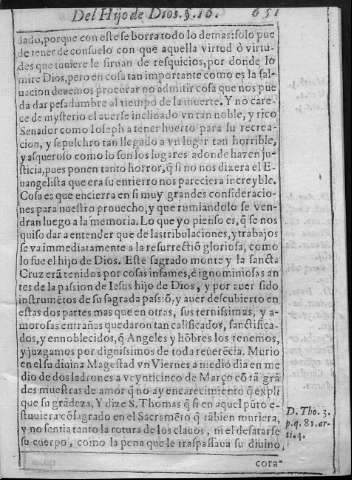 Del Hijo de Dios. §. 16. 651
dado, porque con este se borra todo lo demas: solo pue
de tener de consuelo con que aquella virtud ò virtu-
des que tuuiere le siruan de resquicios, por donde lo
mire Dios, pero en cosa tan importante como es la sal-
uacion deuemos procurar no admitir cosa que nos pue
da dar pesadumbre al tiempo de la muerte. Y no care-
ce de mysterio el auerse inclinado vn tan noble, y rico
Senador como Ioseph a tener huerto para su recrea-
cion, y sepulchro tan llegado a vn lugar tan horrible,
y asqueroso como lo son los lugares adonde hazen jus-
ticia, pues ponen tanto horror, q̃ si no nos dizera el E-
uangelista que era su entierro nos pareciera increyble.
Cosa es que encierra en si muy grandes consideracio-
nes para nuestro prouecho, y que remiandole se ven-
dran luego a la memoria. Lo que yo pienso es, q̃ se nos
quiso dar a entender que de las tribulaciones, y trabajos
se va immediatamente a la resurrectiõ gloriosa, como
lo fue el hijo de Dios. Este sagrado monte y la sancta
Cruz erã tenidos por cosas infames, è ignominiosas an
tes de la passion de Iesus hijo de Dios, y por auer sido
instrumẽtos de su sagrada passiõ, y auer descubierto en
estas dos partes mas que en otras, sus ternissimas, y a-
morosas entrañas quedaron tan calificados, sanctifica-
dos, y ennoblecidos, q̃ Angeles y hõbres los tenemos,
y juzgamos por dignissimos de toda reuerẽcia. Murio
en su diuina Magestad vn Viernes a medio dia en me
dio de dos ladrones a veynticinco de Março cõ tã grã
des muestras de amor q̃ no ay encarecimiento q̃ expli
que su grãdeza, Y dize S. Thomas q̃ si en aquel pũto e-
stuuiera cõsagrado en el Sacramẽto q̃ tãbien muriera,
y no sentia tanto la rotura de los clauos, ni el desatarse
su cuerpo, como la pena que le traspassaua su diuino
cora-
D. Tho. 3.
p. q. 81. ar-
ti. 4.